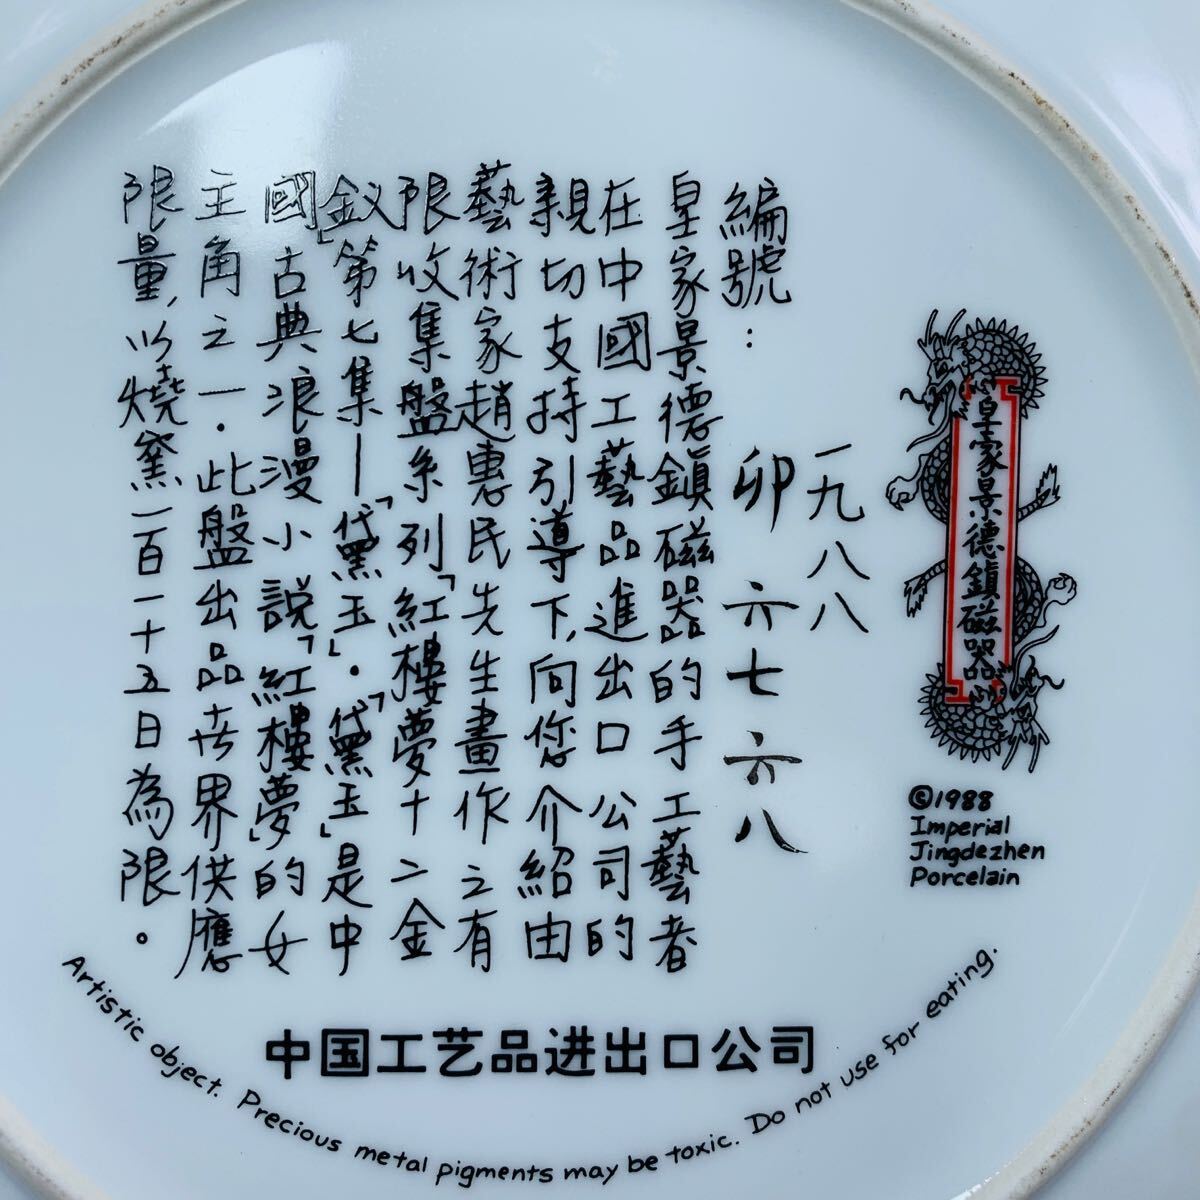 皇家景德鎮磁器
©1988
Imperial
Jingdezhen
Porcelain
一九八八
編號：卯六七六八
皇家景德鎮磁器的手工藝者
在中國工藝品進出口公司的
親切支持引導下,向您介紹由
藝術家趙惠民先生畫作之有
限收集盤系列「紅樓夢十二金
釵」第七集—「黛玉」.「黛玉」是中
國古典浪漫小說「紅樓夢」的女
主角之一.此盤出品世界供應
限量,以燒窯一百一十五日為限。
中国工艺品进出口公司
Artistic object. Precious metal pigments may be toxic. Do not use for eating.